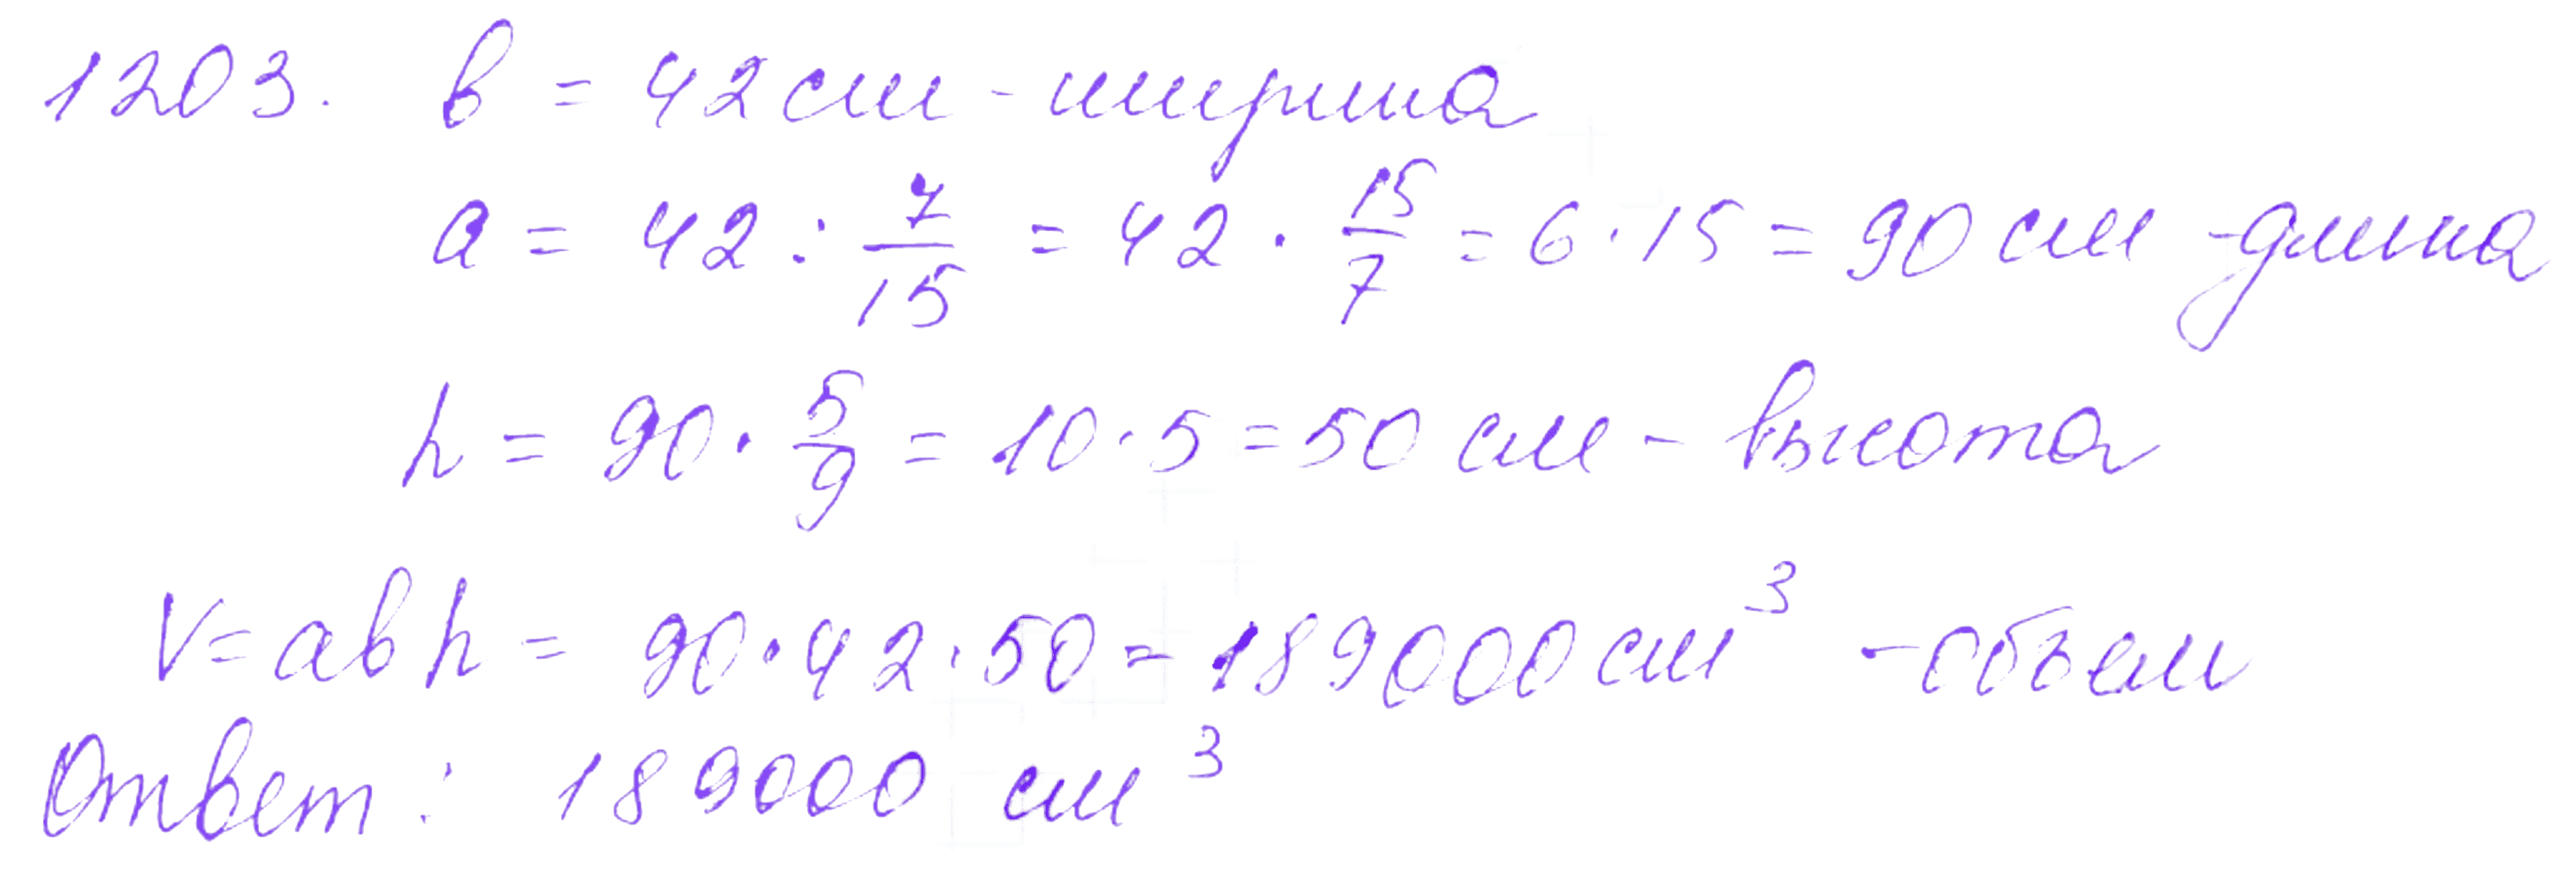 1203. b = 42 см - ширина
a = 42 : 7/15 = 42 · 15/7 = 6 · 15 = 90 см - длина
h = 90 · 5/9 = 10 · 5 = 50 см - высота
V = abh = 90 · 42 · 50 = 189000 см³ - объем
Ответ: 189000 см³